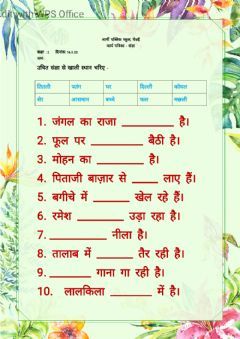 Edit with WPS Office
आर्मी पब्लिक स्कूल,
कार्य पत्रिका - संज्ञा
कक्षा :
दिनांक
नाम:
उचित संज्ञा से खाली स्थान भरिए -
तितली पतंग घर दिल्ली कोयल
शेर आसमान बच्चे फल मछली
1. जंगल का राजा _________ है।
2. फूल पर _______ बैठी है।
3. मोहन का _________ है।
4. पिताजी बाज़ार से _____ लाए हैं।
5. बगीचे में _______ खेल रहे हैं।
6. रमेश _______ उड़ा रहा है।
7. _________ नीला है।
8. तालाब में ______ तैर रही है।
9. _______ गाना गा रही है।
10. लालकिला ______ में है।